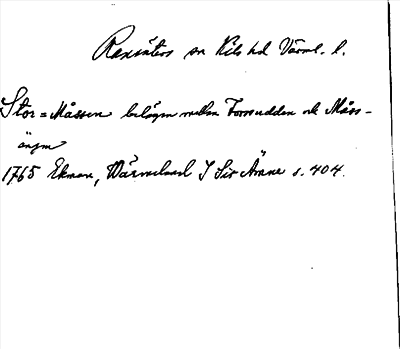 sn Kils hd Värml. l.
Stor=Måssen belägen mellan Torrudden och Måss-
ängen
1765 Ekman, Wärmeland I Sir Åsane s. 404.